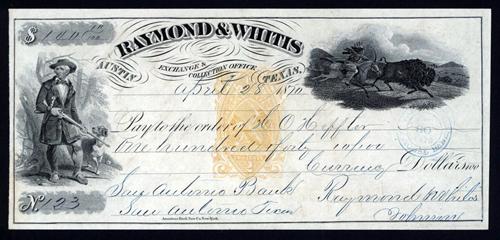 RAYMOND & WHITIS
AUSTIN, EXCHANGE & COLLECTION OFFICE TEXAS,
April 28 1870
Pay to the order of H O Heffler
One hundred & forty
Currency Dollars
San Antonio Bank
San Antonio Texas
Raymond & Whitis
No 123
American Bank Note Co. New York.